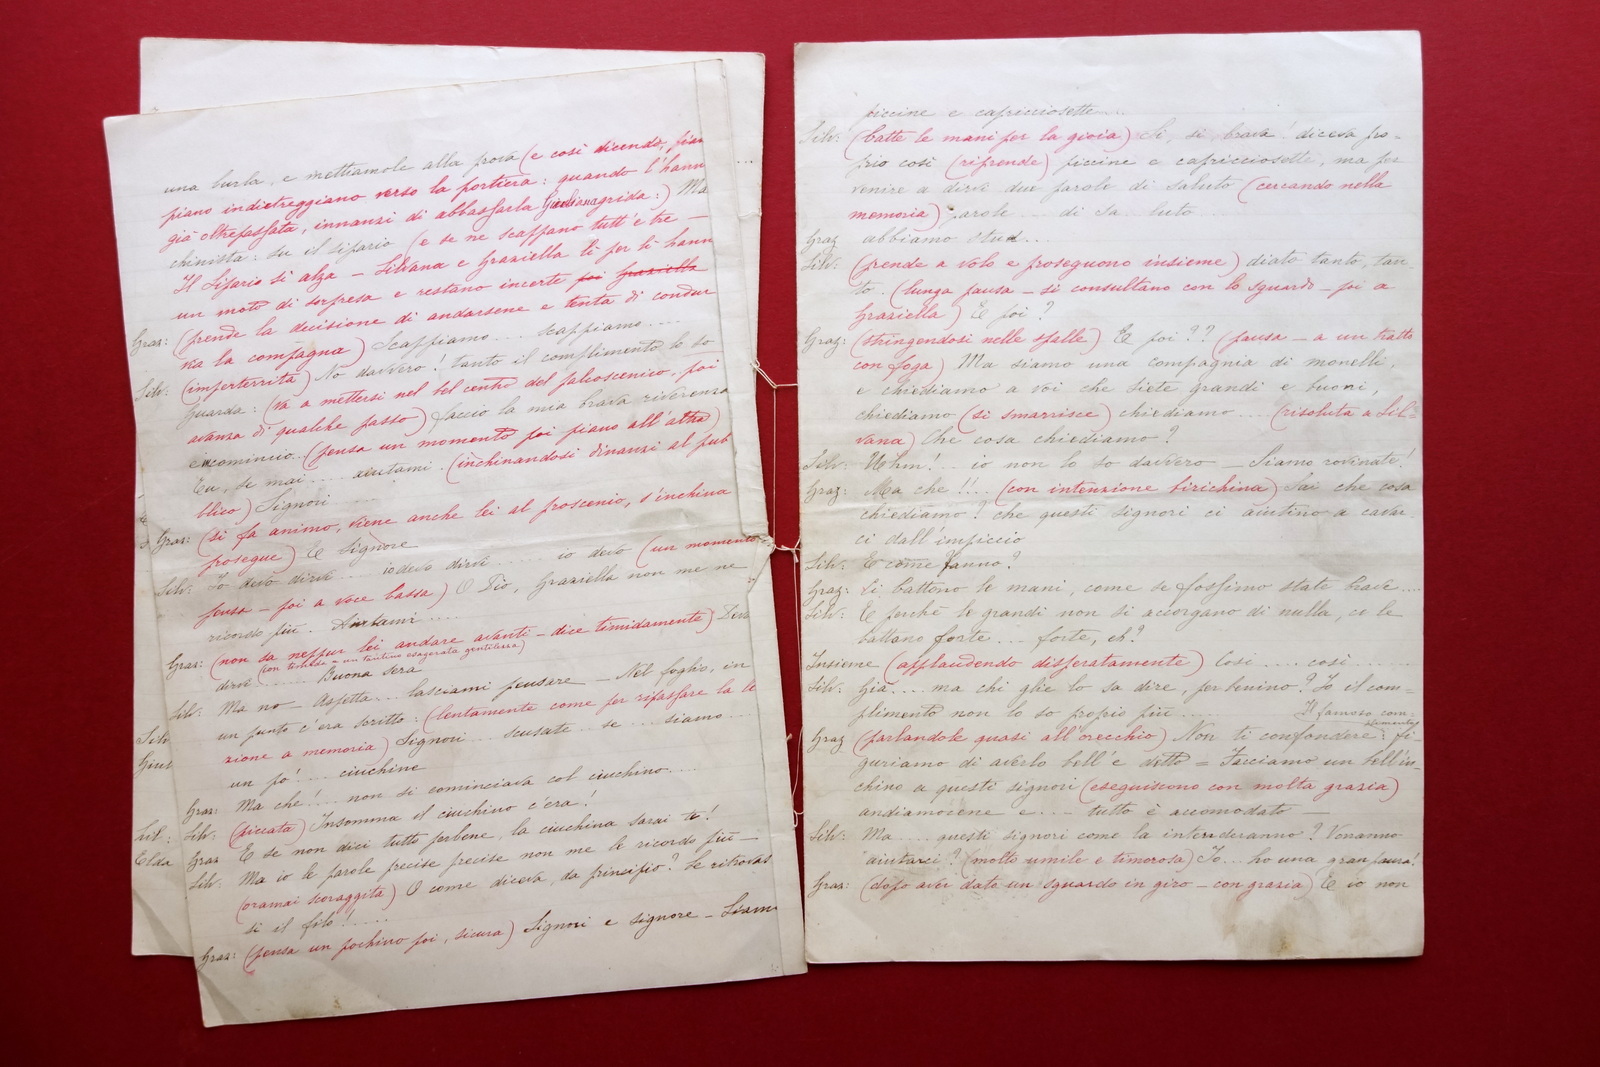 una burla, e mettiamole alla prova (e così dicendo, pian
piano indietreggiano verso la portiera: quando l'hann
già oltrepassata, innanzi di abbassarla Giuliana grida:) Ma
chinista: su il sipario (e se ne scappano tutt'e tre —
Il Sipario si alza — Silvana e Graziella lì per lì hann
un moto di sorpresa e restano incerte poi Graziella
Graz: (prende la decisione di andarsene e tenta di condur
via la compagna) Scappiamo... scappiamo....
Silv: (imperterrita) No davvero! tanto il complimento lo so
Guarda: (va a mettersi nel bel centro del palcoscenico, poi
avanza di qualche passo) faccio la mia brava riverenza
e incomincio.. (pensa un momento poi piano all'altra)
Tu, se mai.... aiutami. (inchinandosi dinanzi al pub
blico) Signori ....
Graz: (si fa animo, viene anche lei al proscenio, s'inchina
prosegue) E Signore
Silv: Io devo dirvi.... io devo dirvi ..... io devo (un momento
pensa — poi a voce bassa) O Dio, Graziella non me ne
ricordo più. Aiutami ....
Graz: (non sa neppur lei andare avanti — dice timidamente) Devo
(con timida e un tantino esagerata gentilezza)
dirvi ....... Buona sera
Silv: Ma no — Aspetta... lasciami pensare — Nel foglio, in
un punto c'era scritto: (lentamente come per ripassare la le
zione a memoria) Signori... scusate... se... siamo...
un po'.... ciuchine
Graz: Ma che!... non si cominciava col ciuchino....
Silv: (piccata) Insomma il ciuchino c'era!
Graz E se non dici tutto perbene, la ciuchina sarai te!
Silv: Ma io le parole precise precise non me le ricordo più —
(oramai scoraggita) O come diceva, da principio? Se ritrovas
si il filo!....
Graz: (pensa un pochino poi, sicura) Signori e signore — Siam
Silv
Giul
Sil:
Elda
piccine e capricciosette...
Silv: (batte le mani per la gioia) Sì, sì, brava! diceva pro-
prio così (riprende) piccine e capricciosette, ma per
venire a dirvi due parole di saluto (cercando nella
memoria) parole... di sa...luto ...
Graz abbiamo stud...
Silv: (prende a volo e proseguono insieme) diato tanto, tan-
to. (lunga pausa — si consultano con lo sguardo — poi a
Graziella) E poi?
Graz: (stringendosi nelle spalle) E poi?? (pausa — a un tratto
con foga) Ma siamo una compagnia di monelli,
e chiediamo a voi che siete grandi e buoni,
chiediamo (si smarrisce) chiediamo.... (risoluta a Sil-
vana) Che cosa chiediamo?
Silv: Uhm!.. io non lo so davvero — Siamo rovinate!
Graz: Ma che!!... (con intenzione birichina) Sai che cosa
chiediamo? che questi signori ci aiutino a cavar-
ci dall'impiccio
Silv: E come fanno?
Graz: Ci battono le mani, come se fossimo state brave....
Silv: E perchè le grandi non si accorgano di nulla, ce le
battano forte... forte, eh?
Insieme (applaudendo disperatamente) Così.... così.......
Silv: Già.... ma chi glie lo sa dire, per benino? Io il com=
plimento non lo so proprio più......
Il famoso com-
plimento
Graz (parlandole quasi all'orecchio) Non ti confondere: fi-
guriamo di averlo bell'e detto = Facciamo un bell'in-
chino a questi signori (eseguiscono con molta grazia)
andiamocene e... tutto è accomodato —
Silv: Ma.... questi signori come la intenderanno? Vorranno
aiutarci? (molto umile e timorosa) Io... ho una gran paura!
Graz: (dopo aver dato un sguardo in giro — con grazia) E io non